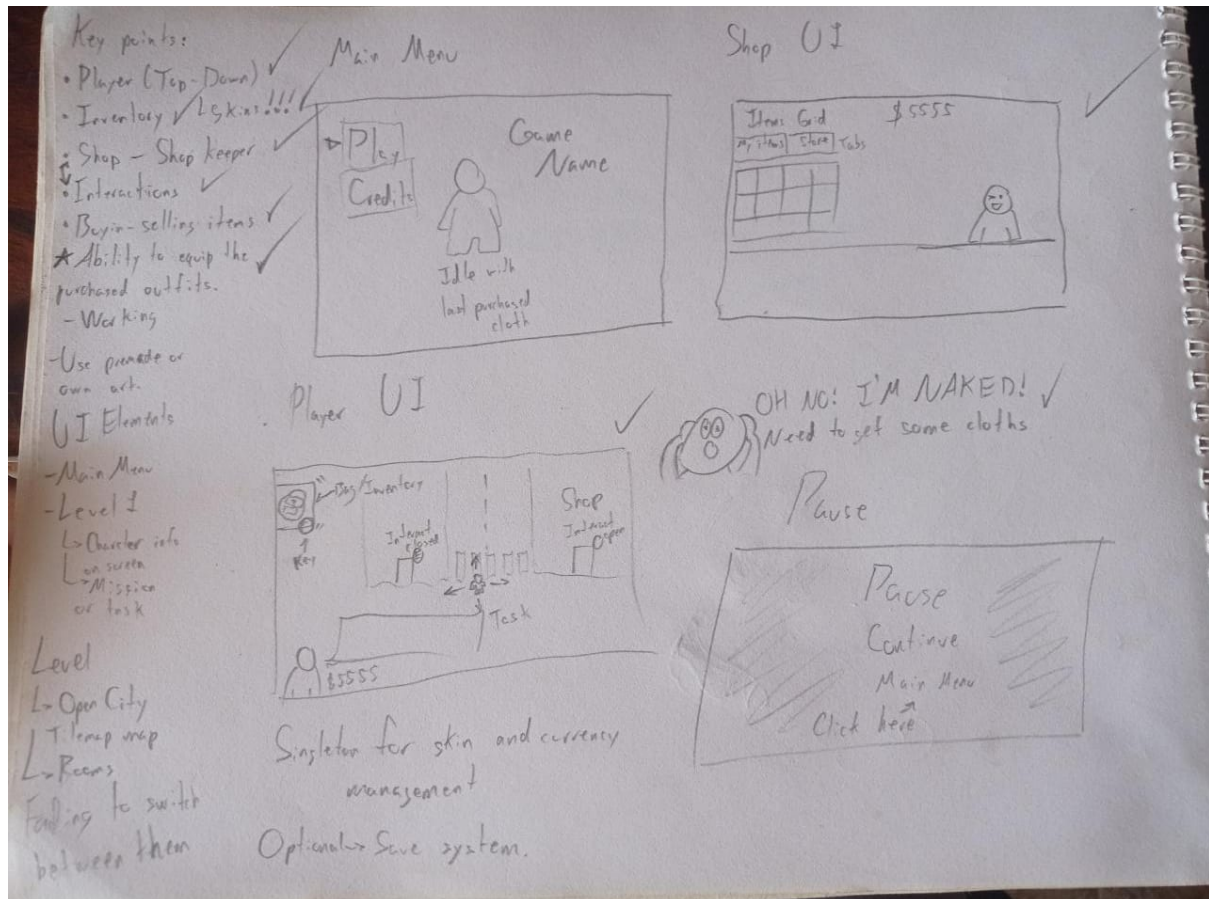 Key points:
• Player (Top-Down)
• Inventory
Lskins!!!
• Shop - Shop keeper
• Interactions
• Buyin-selling items
★ Ability to equip the
purchased outfits.
- Working
- Use premade or
own art.
UI Elements
- Main Menu
- Level 1
Character info
on screen
Mission
or task
Level
Open City
Tilemap map
Rooms
Fading to switch
between them
Main Menu
Play
Credits
Game
Name
Idle with
last purchased
cloth
Shop UI
Items Grid
$5555
My items
Store
Tabs
Player UI
Bag/Inventory
Key
Interact
closed
Shop
Interact
open
Task
$5555
OH NO! I'M NAKED!
Need to get some cloths
Pause
Pause
Continue
Main Menu
Click here
Singleton for skin and currency
management
Optional→ Save system.